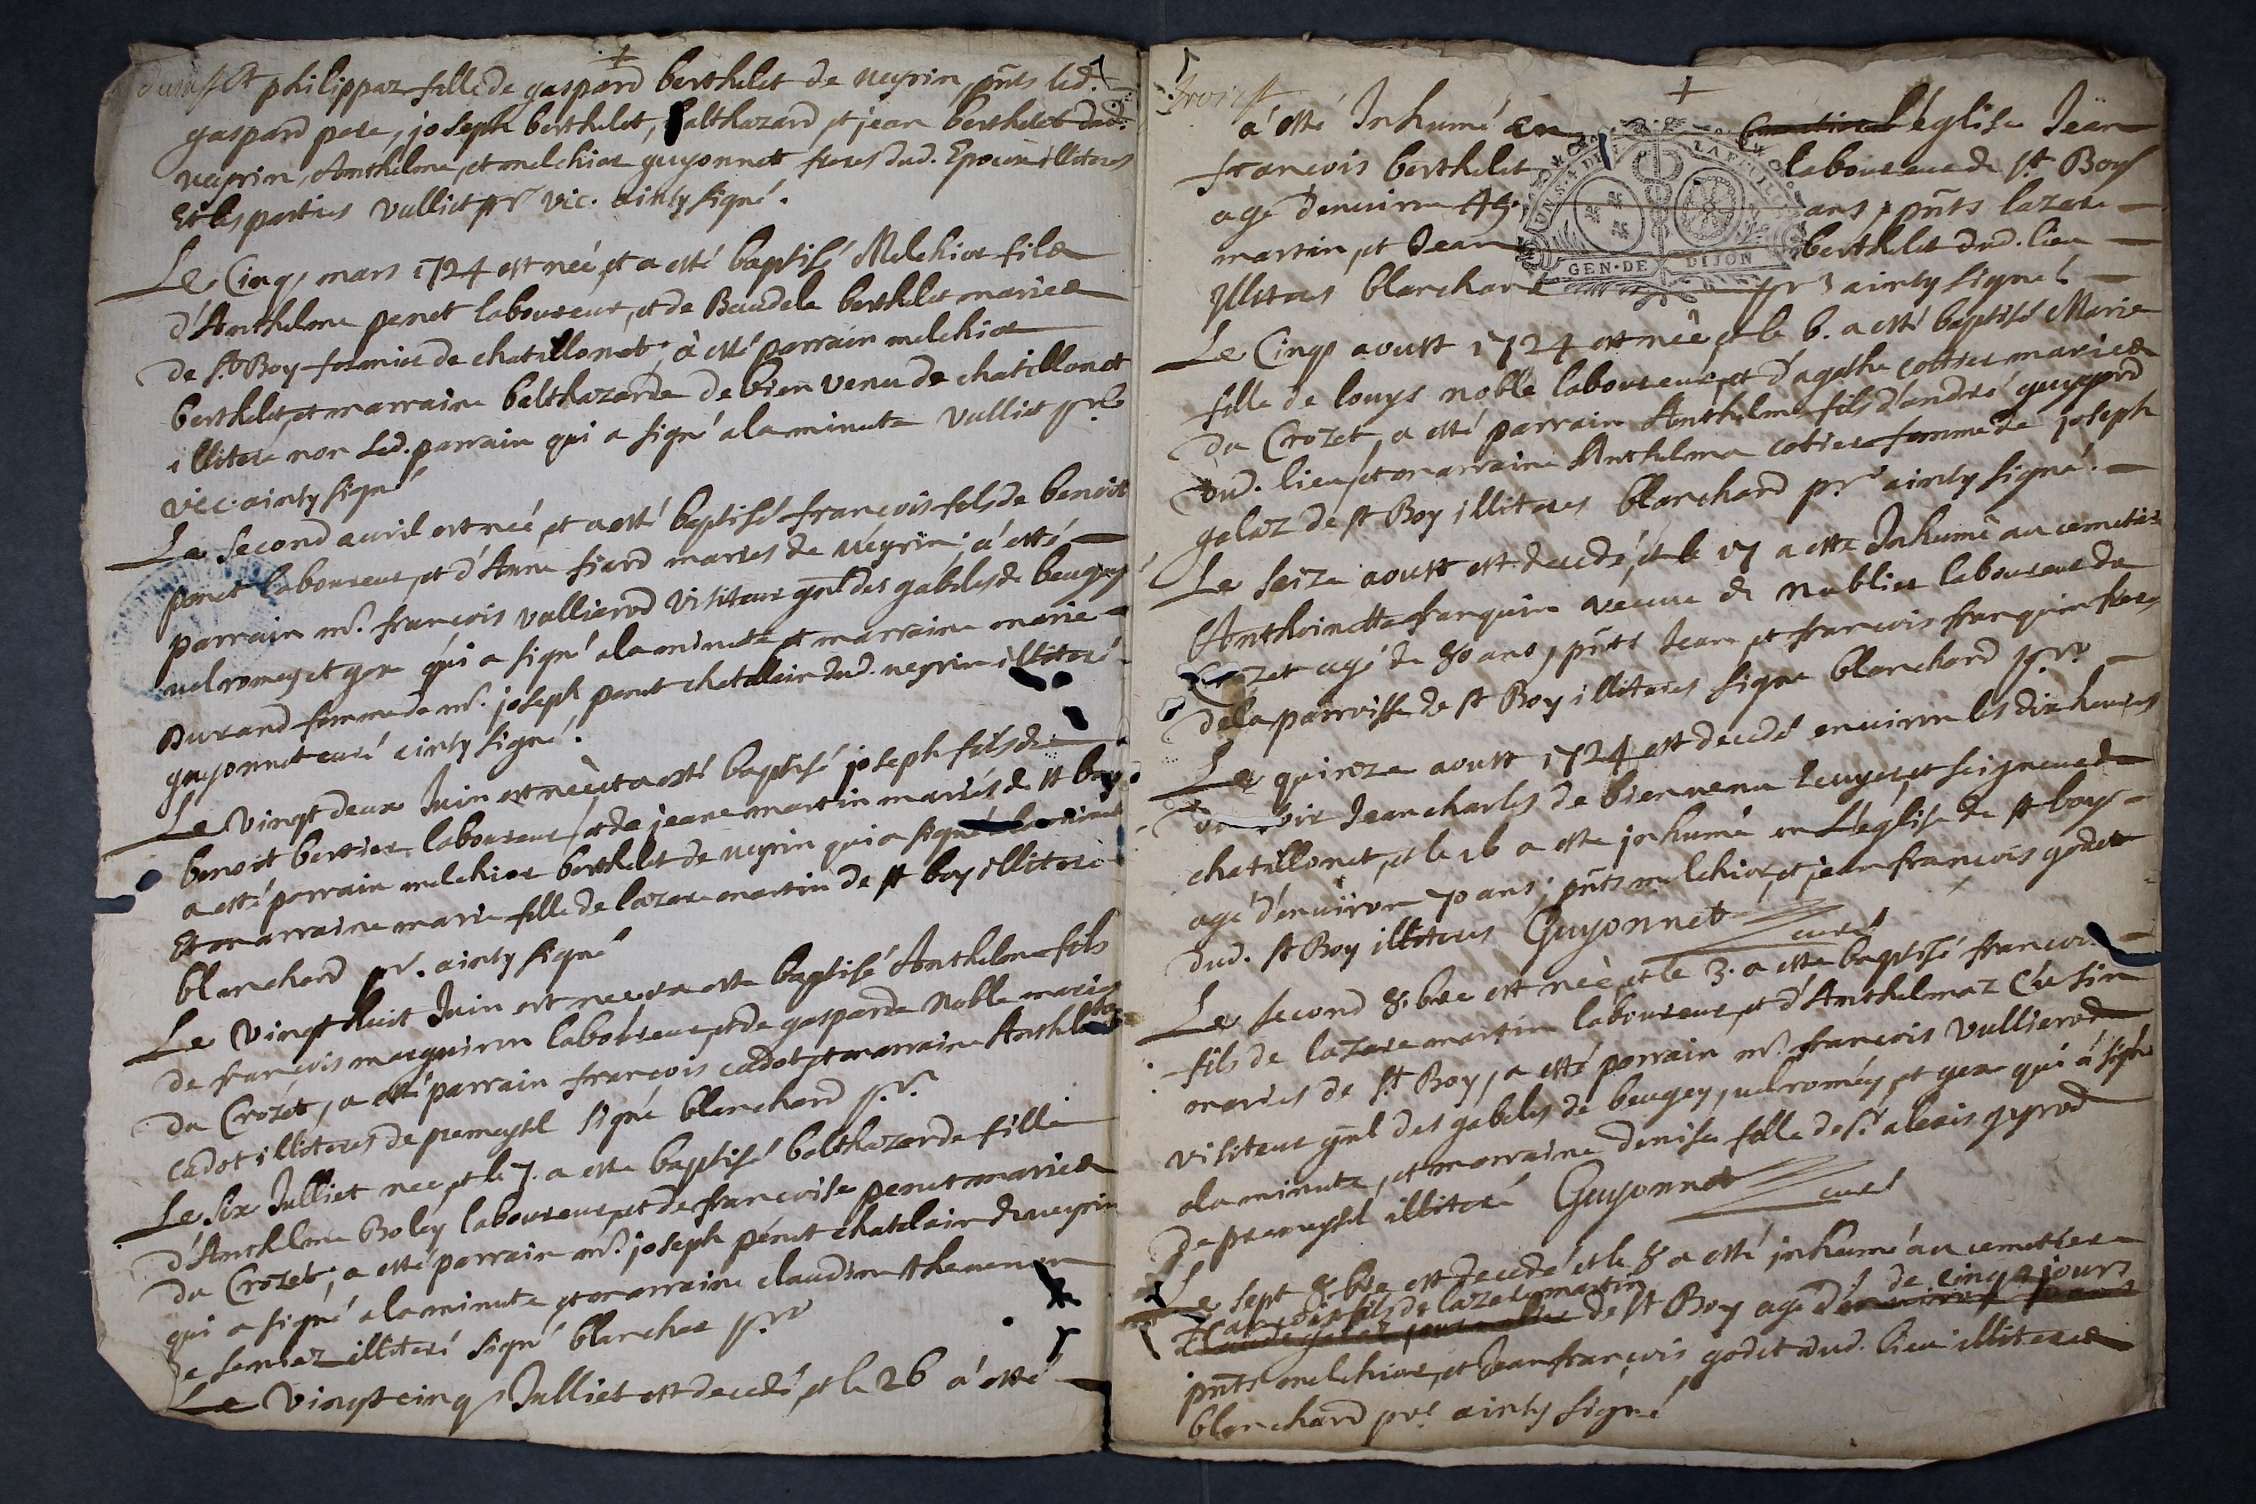 philippaz fille de gaspard berthelet de neyrin, pnts led.
gaspard pere, joseph berthelet, balthazard et jean berthelet dud.
neyrin, Anthelme, et melchior guyonnet freres dud. Epoux illiteres
Et les parties Vulliet pr vic. ainsy signé.
Le Cinq mars 1724 est neé, et a esté baptisé Melchior fils
d'Anthelme penet laboureur, et de Baudele berthelet mariés
de st Boy fermier de chatillonet, à esté parrain melchior
berthelet, et marraine balthazarde de bien venu de chatillonet
illiteré non led. parrain qui a signé a la minute Vulliet pr
vic. ainsy signé
Le Second avril est neé, et a esté baptisé françois fils de benoit
penet laboureur, et d'Anne fiard mariés de neyrin, a esté
parrain mr. françois vullierod Visiteur gnl des gabeles de beugey
velromey et gex qui a signé a la minute et marraine marie
Durand femme de mr. joseph penet chatelain dud. neyrin illiteré
guyonnet curé ainsy signé.
Le Vingt deux Juin est neé, et a esté baptisé joseph fils de
benoit bertier laboureur, et de jeane martin mariés de st boy
a esté parrain melchior berthelet de neyrin qui a signé a la minute
Et marraine marie fille de lazare martin de st boy illiteré
blanchard pr. ainsy signé
Le Vingt huit Juin est neé, et a esté baptisé Anthelme fils
de françois marguiron laboureur, et de gasparde Noble mariés
du Crozet, a esté parrain françois cadot, et marraine Anthelme
cadot illiteres de premeysel signé blanchard pr.
Le Six Julliet neé, et le 7. a esté baptisé balthazarde fille
d'Anthelme Boley laboureur, et de françoise penet mariés
du Crozet, a esté parrain mr. joseph penet chatelain de neyrin
qui a signé a la minute, et marraine claudine thevenon
illiteré signé blanchar pr
Le Vingt cinq Julliet est decedé, et le 26 a esté
a esté Inhumé en l'église Jean
françois berthelet laboureur de st. Boy
agé d'environ 45. ans, pnts lazare
martin, et Jean berthelet dud. lieu
Illiteres blanchard pr ainsy signé
Le Cinq aoust 1724 est neé, et le 6. a esté baptisé Marie
fille de louys noble laboureur, et d'agathe cottier mariés
du Crozet, a esté parrain Anthelme fils d'andré guygard
dud. lieu, et marraine Anthelma cotier femme de joseph
galaz de st Boy illiteres blanchard pr ainsy signé.
Le Seize aoust est decedé, et le 17 a esté Inhumé au cemetiere
Anthoinette franquin veuve de Nublier laboureur du
Crozet agé de 80 ans, pnts Jean et françois franquin freres
de la parroisse de st Boy illiteres signe blanchard pr
Le quinze aoust 1724 est decedé environ les dix heures
Jean charles de bienvenu Ecuyer, et seigneur de
chatillonet, et le 16 a esté inhumé en L'église de st boys
agé d'environ 70 ans, pnts melchior, et jean françois godet
dud. st Boy illiteres Guyonnet curé
Le Second 8.bre est neé, et le 3. a esté baptisé françois
fils de lazare martin laboureur, et d'Anthelmaz Cusin
mariés de st Boy, a esté parrain mr. françois Vullierod
Visiteur gnl des gabeles de beugey, velromey, et gex qui a signé
a la minute, et marraine denise fille de sr alexis gyrod
de premeysel illiteré Guyonnet curé
Le sept 8.bre est decedé et le 8 a esté inhumé au cemettiere
françois fils de lazare martin de st Boy agé de cinq jours
pnts melchior, et Jean françois godet dud. lieu illiteres
blanchard pr ainsy signé
GEN·DE DIJON